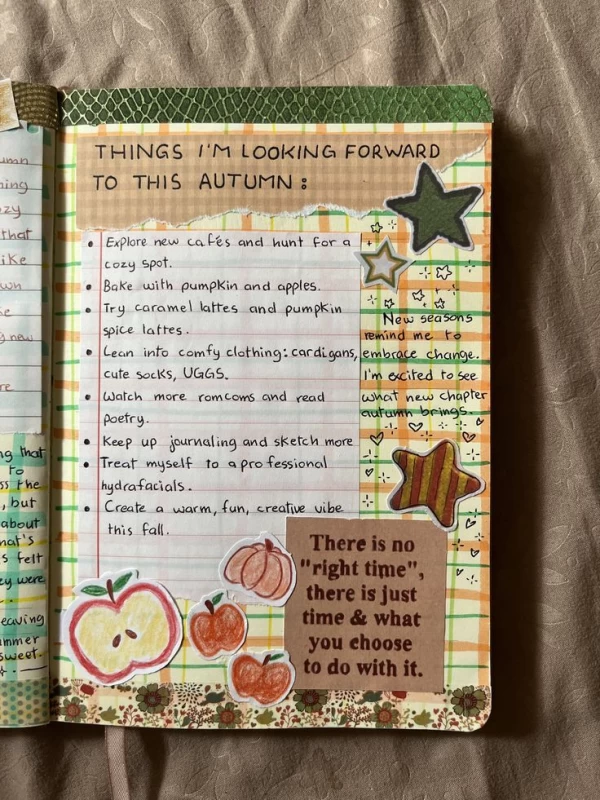 THINGS I'M LOOKING FORWARD
TO THIS AUTUMN:
• Explore new cafés and hunt for a
cozy spot.
• Bake with pumpkin and apples.
• Try caramel lattes and pumpkin
spice lattes.
• Lean into comfy clothing: cardigans,
cute socks, UGGS.
• Watch more romcoms and read
poetry.
• Keep up journaling and sketch more
• Treat myself to a professional
hydrafacials.
• Create a warm, fun, creative vibe
this fall.
New seasons
remind me to
embrace change.
I'm excited to see
what new chapter
autumn brings.
There is no
"right time",
there is just
time & what
you choose
to do with it.
that
new
ng that
to
ss the
, but
about
hat's
s felt
ey were
eaving
ummer
sweet.